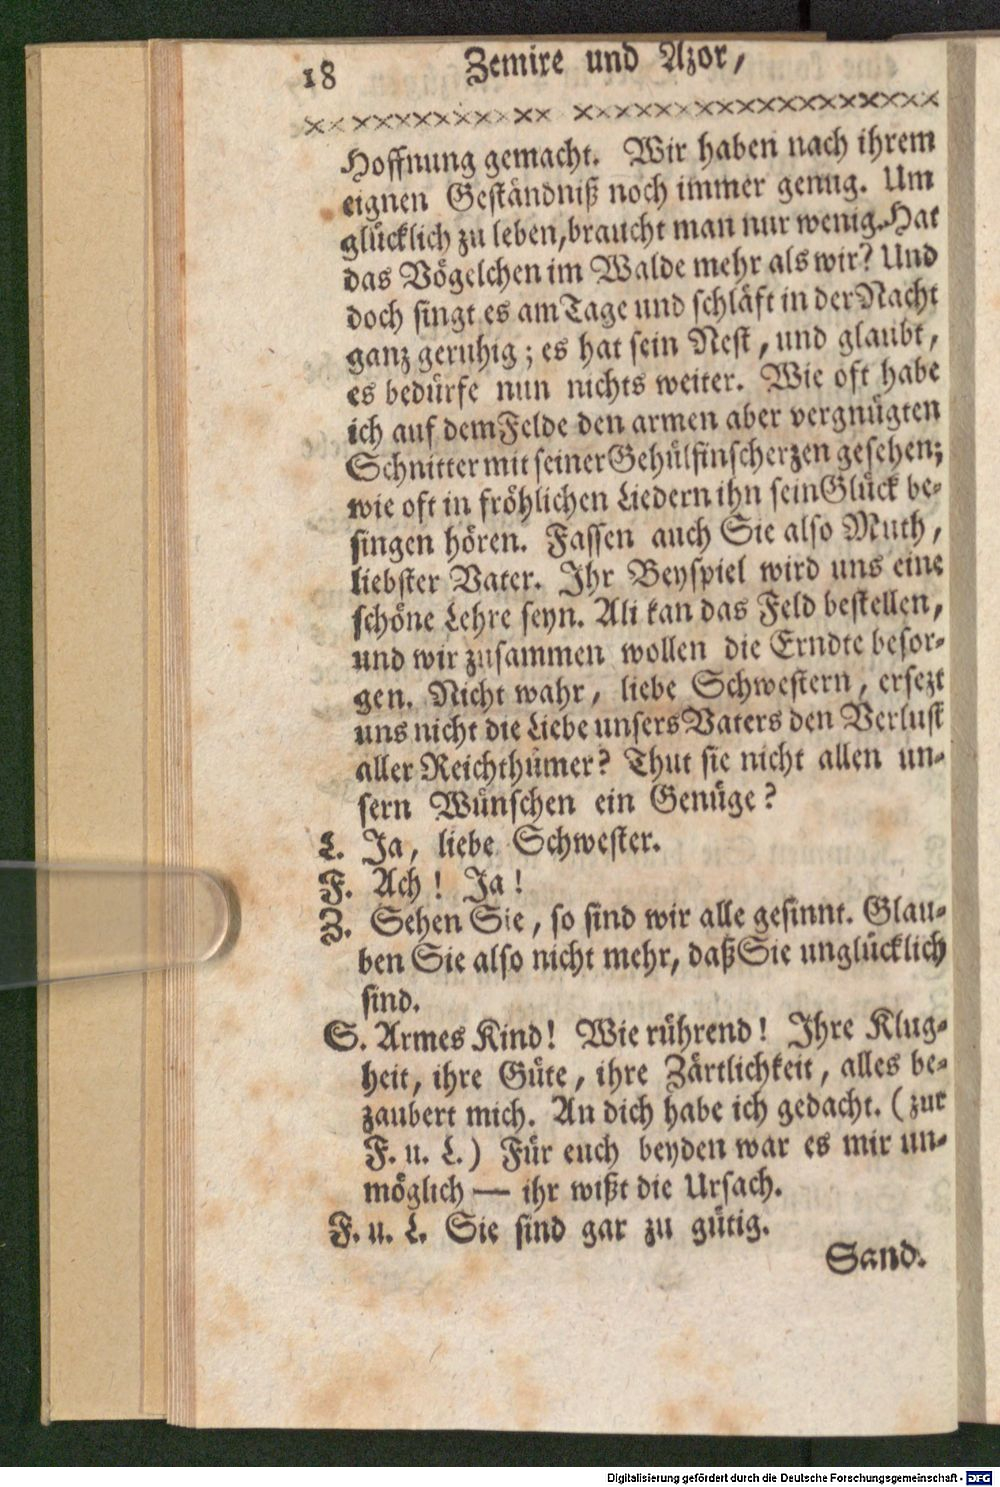 18 Zemire und Azor,
Hoffnung gemacht. Wir haben nach ihrem
eignen Geständniß noch immer genug. Um
glücklich zu leben, braucht man nur wenig. Hat
das Vögelchen im Walde mehr als wir? Und
doch singt es am Tage und schläft in der Nacht
ganz geruhig; es hat sein Nest, und glaubt,
es bedürfe nun nichts weiter. Wie oft habe
ich auf dem Felde den armen aber vergnügten
Schnitter mit seiner Gehülfin scherzen gesehen;
wie oft in fröhlichen Liedern ihn sein Glück be-
singen hören. Fassen auch Sie also Muth,
liebster Vater. Ihr Beyspiel wird uns eine
schöne Lehre seyn. Ali kan das Feld bestellen,
und wir zusammen wollen die Erndte besor-
gen. Nicht wahr, liebe Schwestern, ersezt
uns nicht die Liebe unsers Vaters den Verlust
aller Reichthümer? Thut sie nicht allen un-
sern Wünschen ein Genüge?
L. Ja, liebe Schwester.
F. Ach! Ja!
Z. Sehen Sie, so sind wir alle gesinnt. Glau-
ben Sie also nicht mehr, daß Sie unglücklich
sind.
S. Armes Kind! Wie rührend! Ihre Klug-
heit, ihre Güte, ihre Zärtlichkeit, alles be-
zaubert mich. An dich habe ich gedacht. (zur
F. u. L.) Für euch beyden war es mir un-
möglich — ihr wißt die Ursach.
F. u. L. Sie sind gar zu gütig.
Sand.
Digitalisierung gefördert durch die Deutsche Forschungsgemeinschaft - DFG